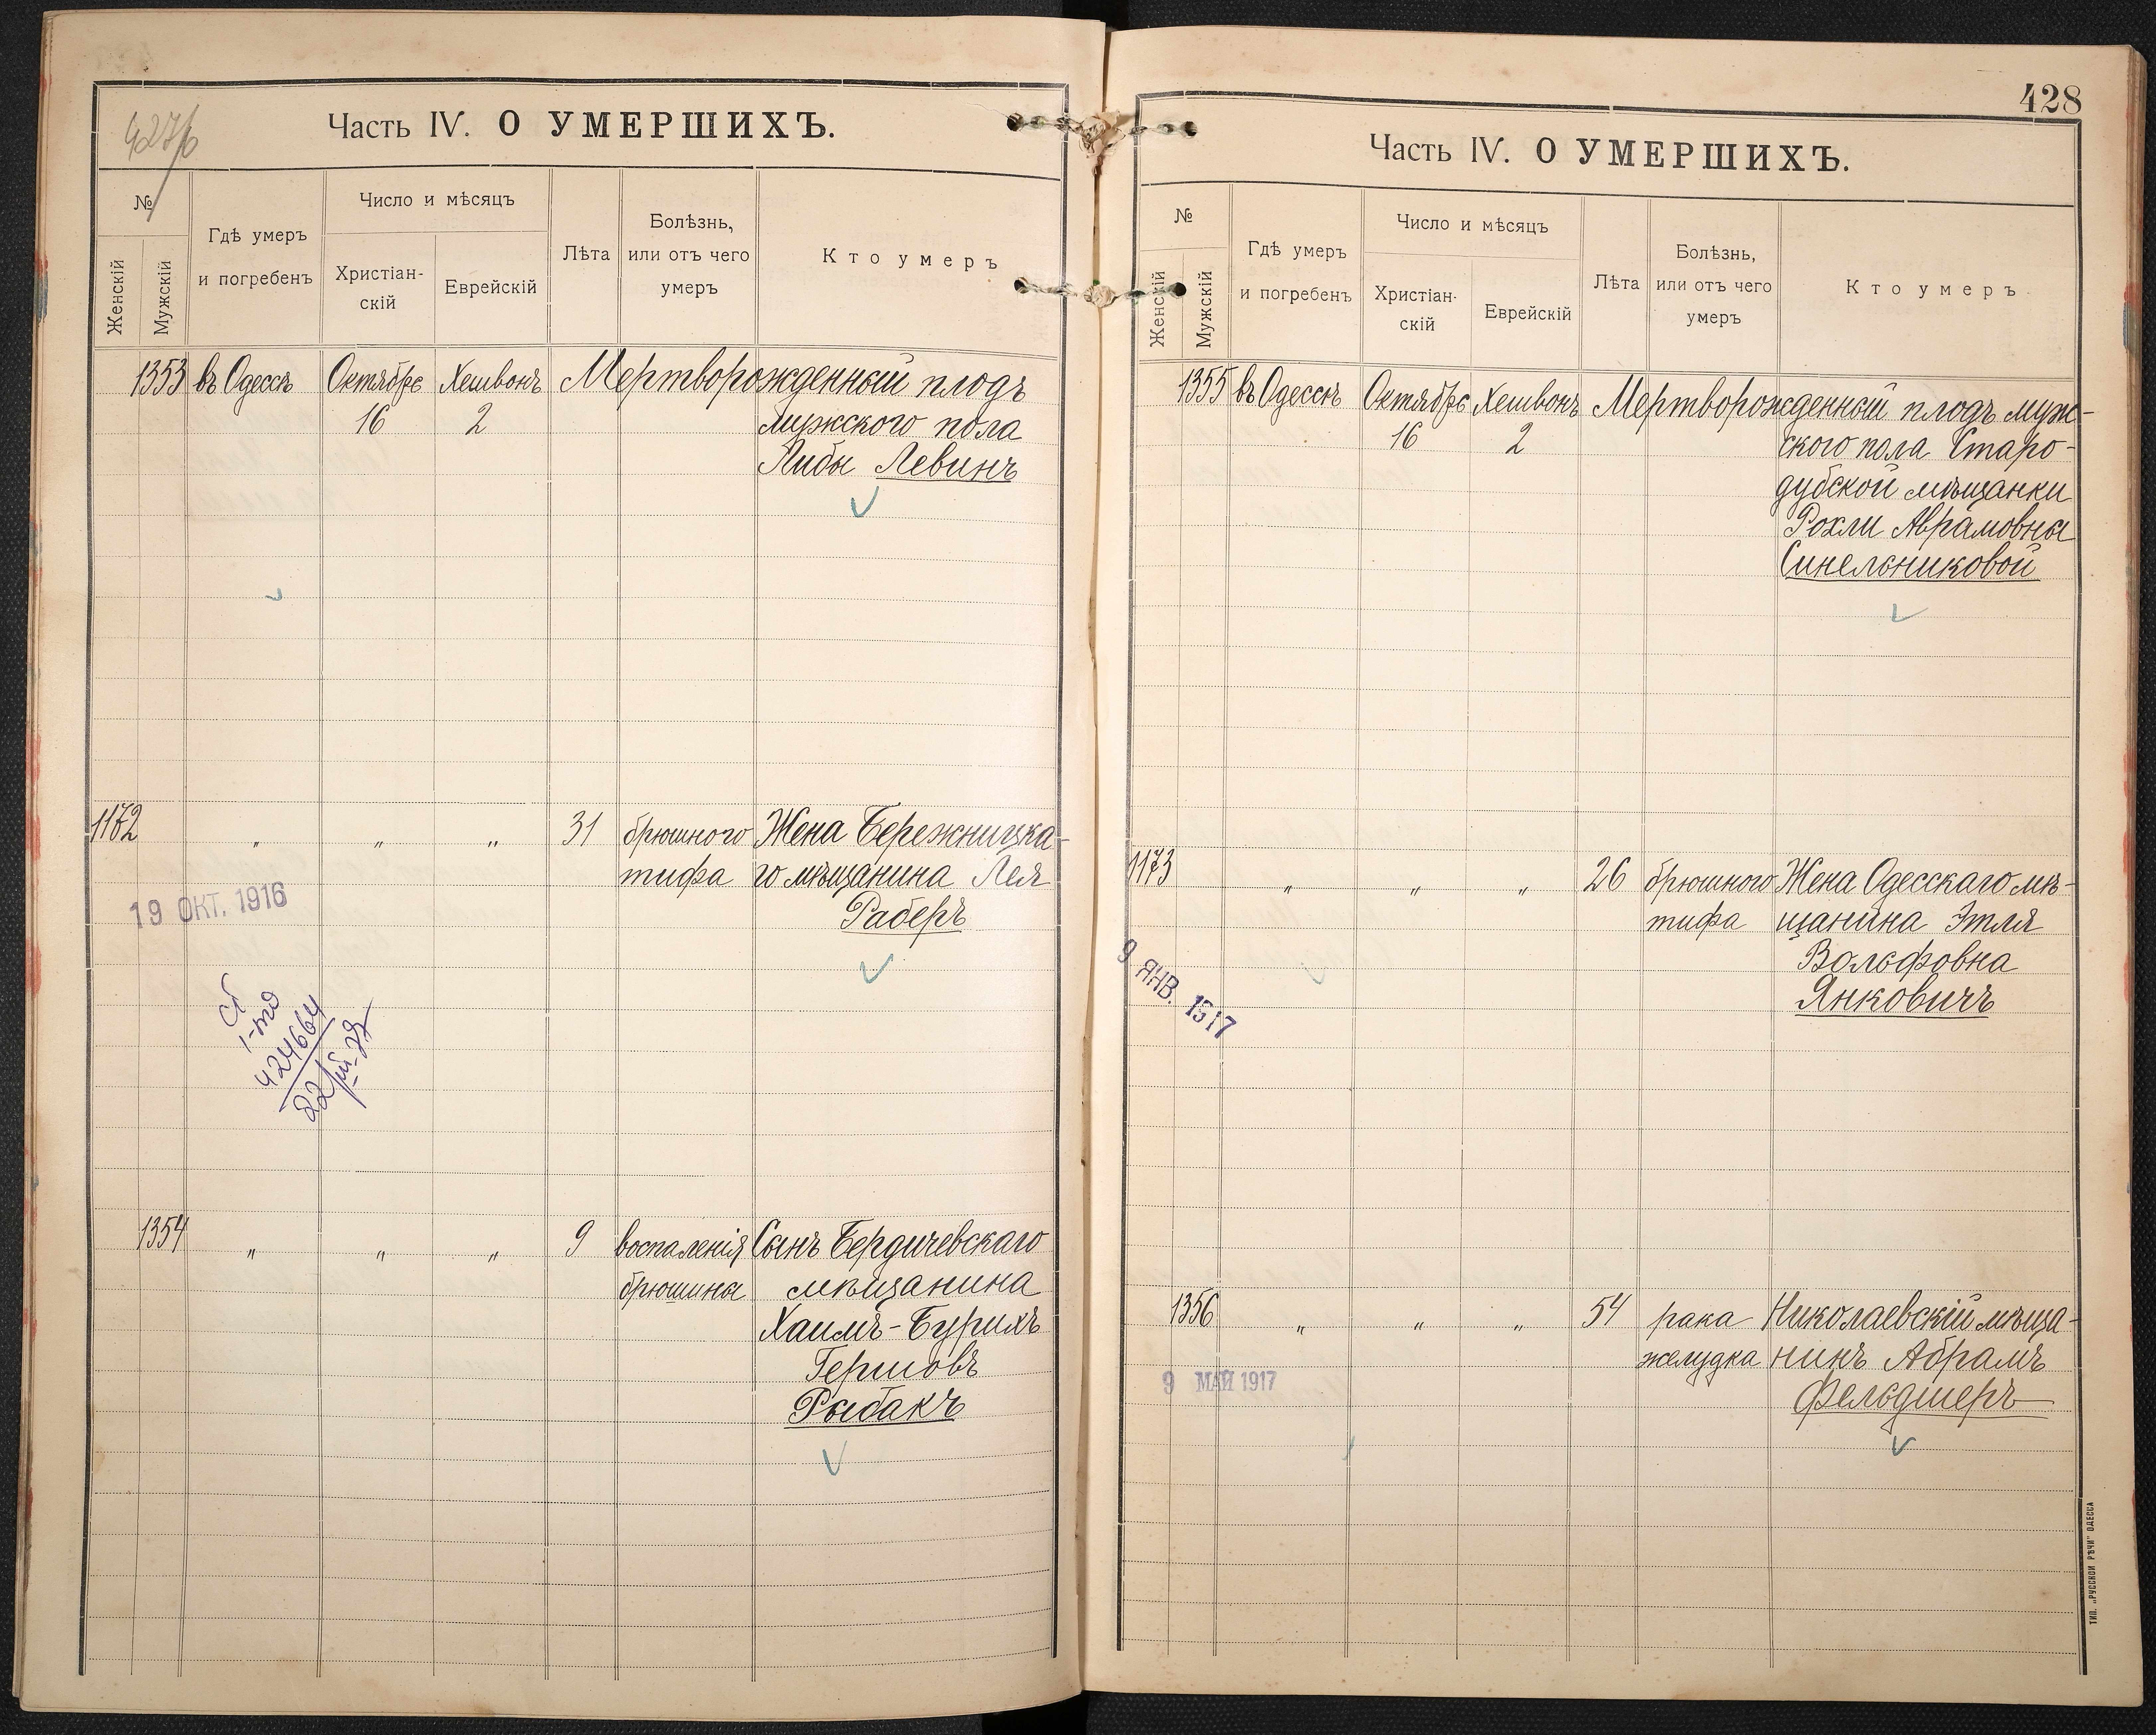 427б
Часть IV. О УМЕРШИХЪ.
№
Женскій
Мужскій
Гдѣ умеръ
и погребенъ
Число и мѣсяцъ
Христіан-
скій
Еврейскій
Лѣта
Болѣзнь,
или отъ чего
умеръ
Кто умеръ
1353 въ Одессѣ Октябрѣ Хешвонъ Мертворожденный плодъ
16 2 мужского пола
Либы Левинъ
1172 " " " 31 брюшного Жена Бережницка-
тифа го мѣщанина Лея
Раберъ
19 ОКТ. 1916
424664
1354 " " " 9 воспаленія Сынъ Бердичевскаго
брюшины мѣщанина
Хаимъ-Бурихъ
Гершовъ
Рыбакъ
428
Часть IV. О УМЕРШИХЪ.
№
Женскій
Мужскій
Гдѣ умеръ
и погребенъ
Число и мѣсяцъ
Христіан-
скій
Еврейскій
Лѣта
Болѣзнь,
или отъ чего
умеръ
Кто умеръ
1355 въ Одессѣ Октябрѣ Хешвонъ Мертворожденный плодъ муж-
16 2 ского пола Старо-
дубской мѣщанки
Рохли Абрамовны
Синельниковой
1173 " " " 26 брюшного Жена Одесскаго мѣ-
тифа щанина Этля
Вольфовна
Янковичъ
9 ЯНВ. 1517
1356 " " " 54 рака Николаевскій мѣща-
желудка нинъ Абрамъ
Фельдшеръ
9 МАЙ 1917
ТИП. „РУССКОЙ РѢЧИ" ОДЕССА